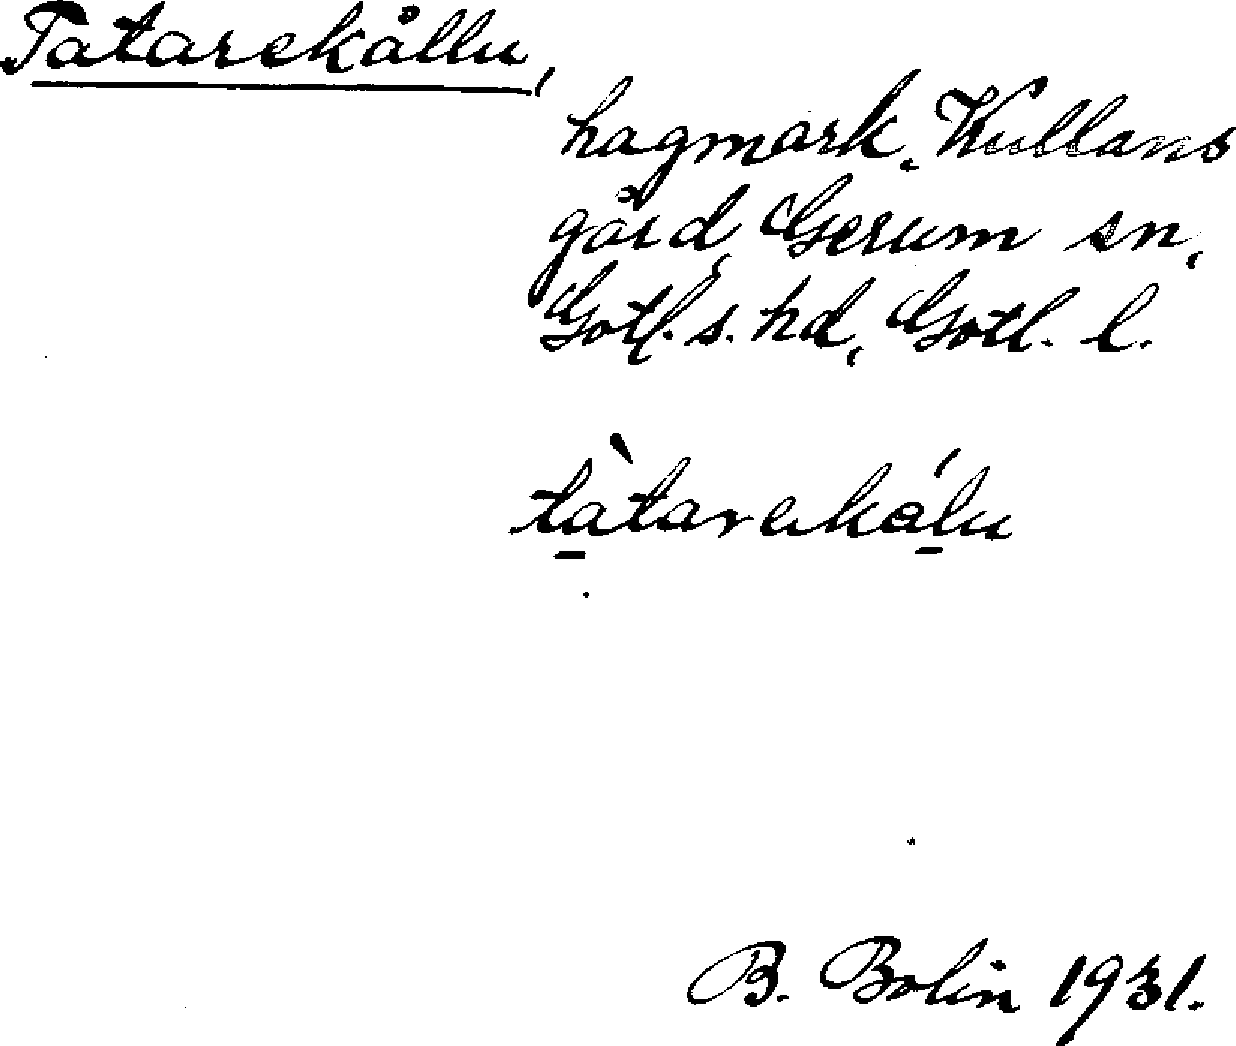 Tatarekållu,
hagmark, Kullans
gård, Gerum sn,
Gotl. s. hd, Gotl. l.
tàtarekålu
B. Bolin 1931.